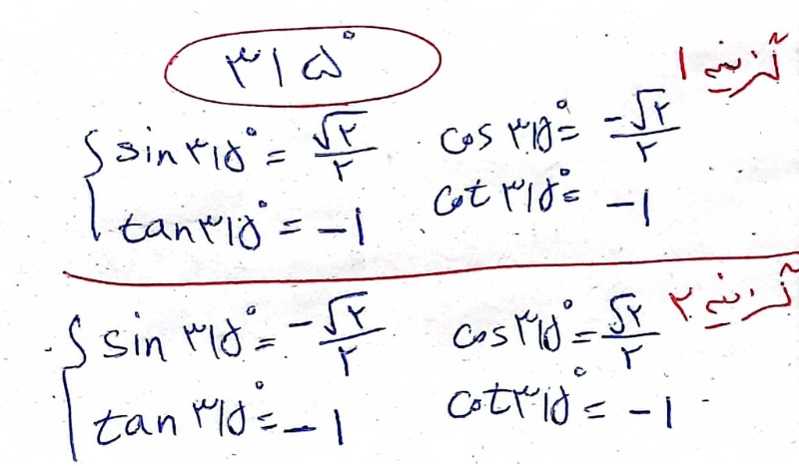 ۳۱۵°
گزینه ۱
sin ۳۱۵° = √۲/۲ cos ۳۱۵° = -√۲/۲
tan ۳۱۵° = -۱ cot ۳۱۵° = -۱
گزینه ۲
sin ۳۱۵° = -√۲/۲ cos ۳۱۵° = √۲/۲
tan ۳۱۵° = -۱ cot ۳۱۵° = -۱